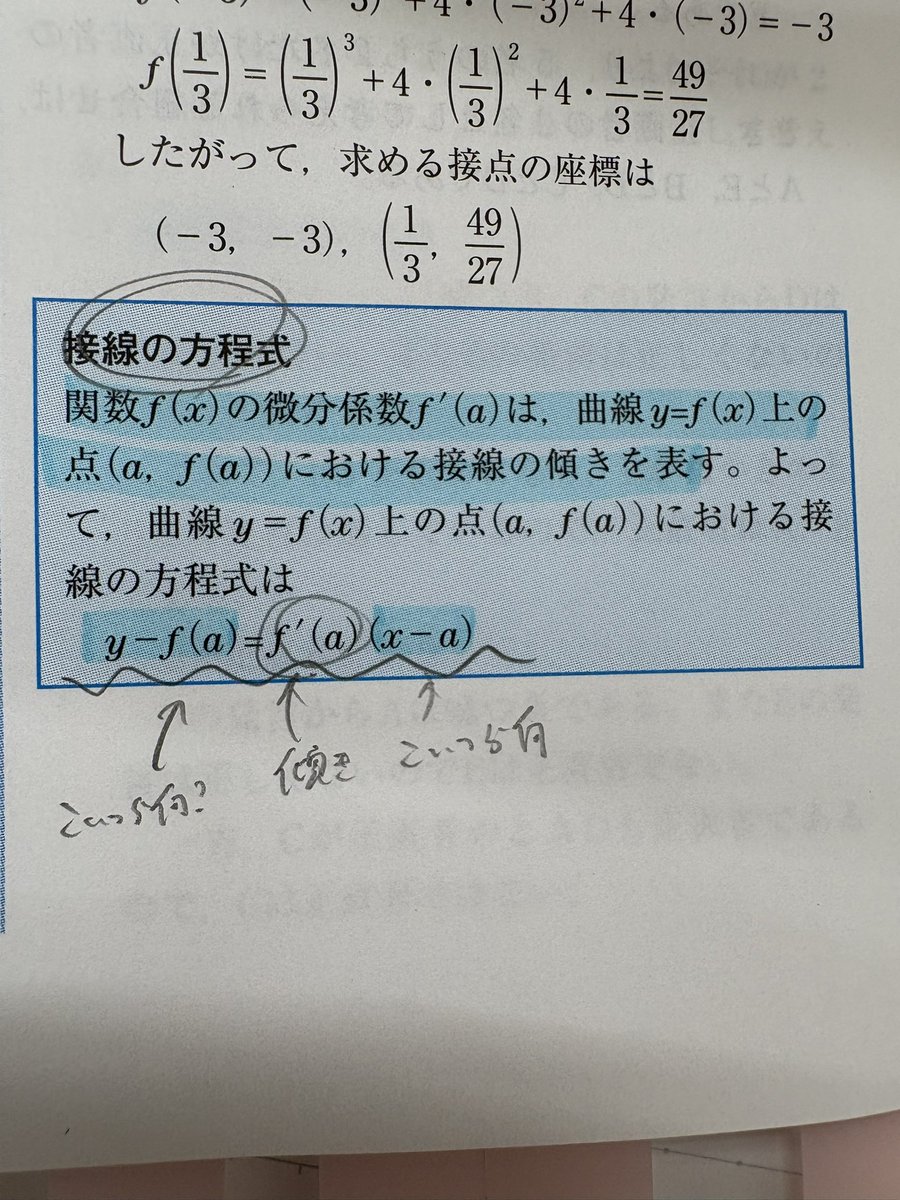 (-3)²+4・(-3)=-3
f(1/3)=(1/3)³+4・(1/3)²+4・1/3=49/27
したがって，求める接点の座標は
(-3, -3), (1/3, 49/27)
接線の方程式
関数f(x)の微分係数f′(a)は，曲線y=f(x)上の
点(a, f(a))における接線の傾きを表す。よっ
て，曲線y=f(x)上の点(a, f(a))における接
線の方程式は
y-f(a)=f′(a)(x-a)
こいつら何?
傾き
こいつら何